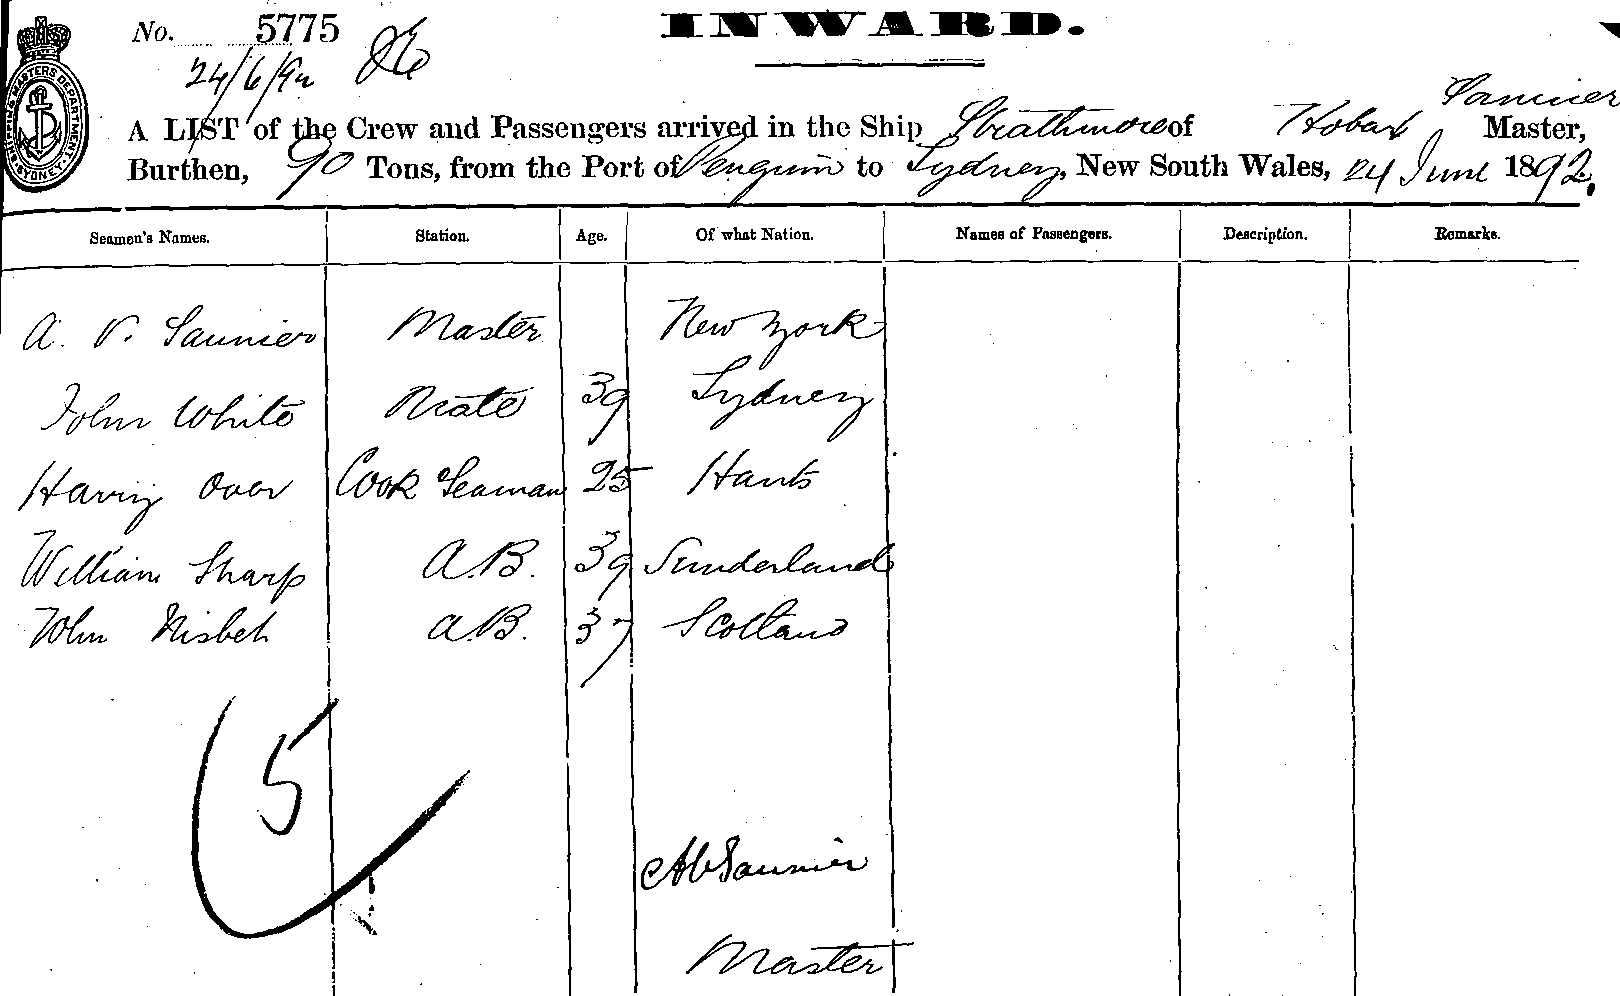 INWARD.
No. 5775
24/6/92
SHIPPING MASTERS DEPARTMENT SYDNEY
Saunier
A LIST of the Crew and Passengers arrived in the Ship Strathmore of Hobart Master,
Burthen, 90 Tons, from the Port of Penguin to Sydney, New South Wales, 24 June 1892.
Seamen's Names. Station. Age. Of what Nation. Names of Passengers. Description. Remarks.
A. V. Saunier Master New York
John White Mate 39 Sydney
Harry Over Cook Seaman 25 Hants
William Sharp A.B. 39 Sunderland
John Nisbet A.B. 37 Scotland
5
AV Saunier
Master